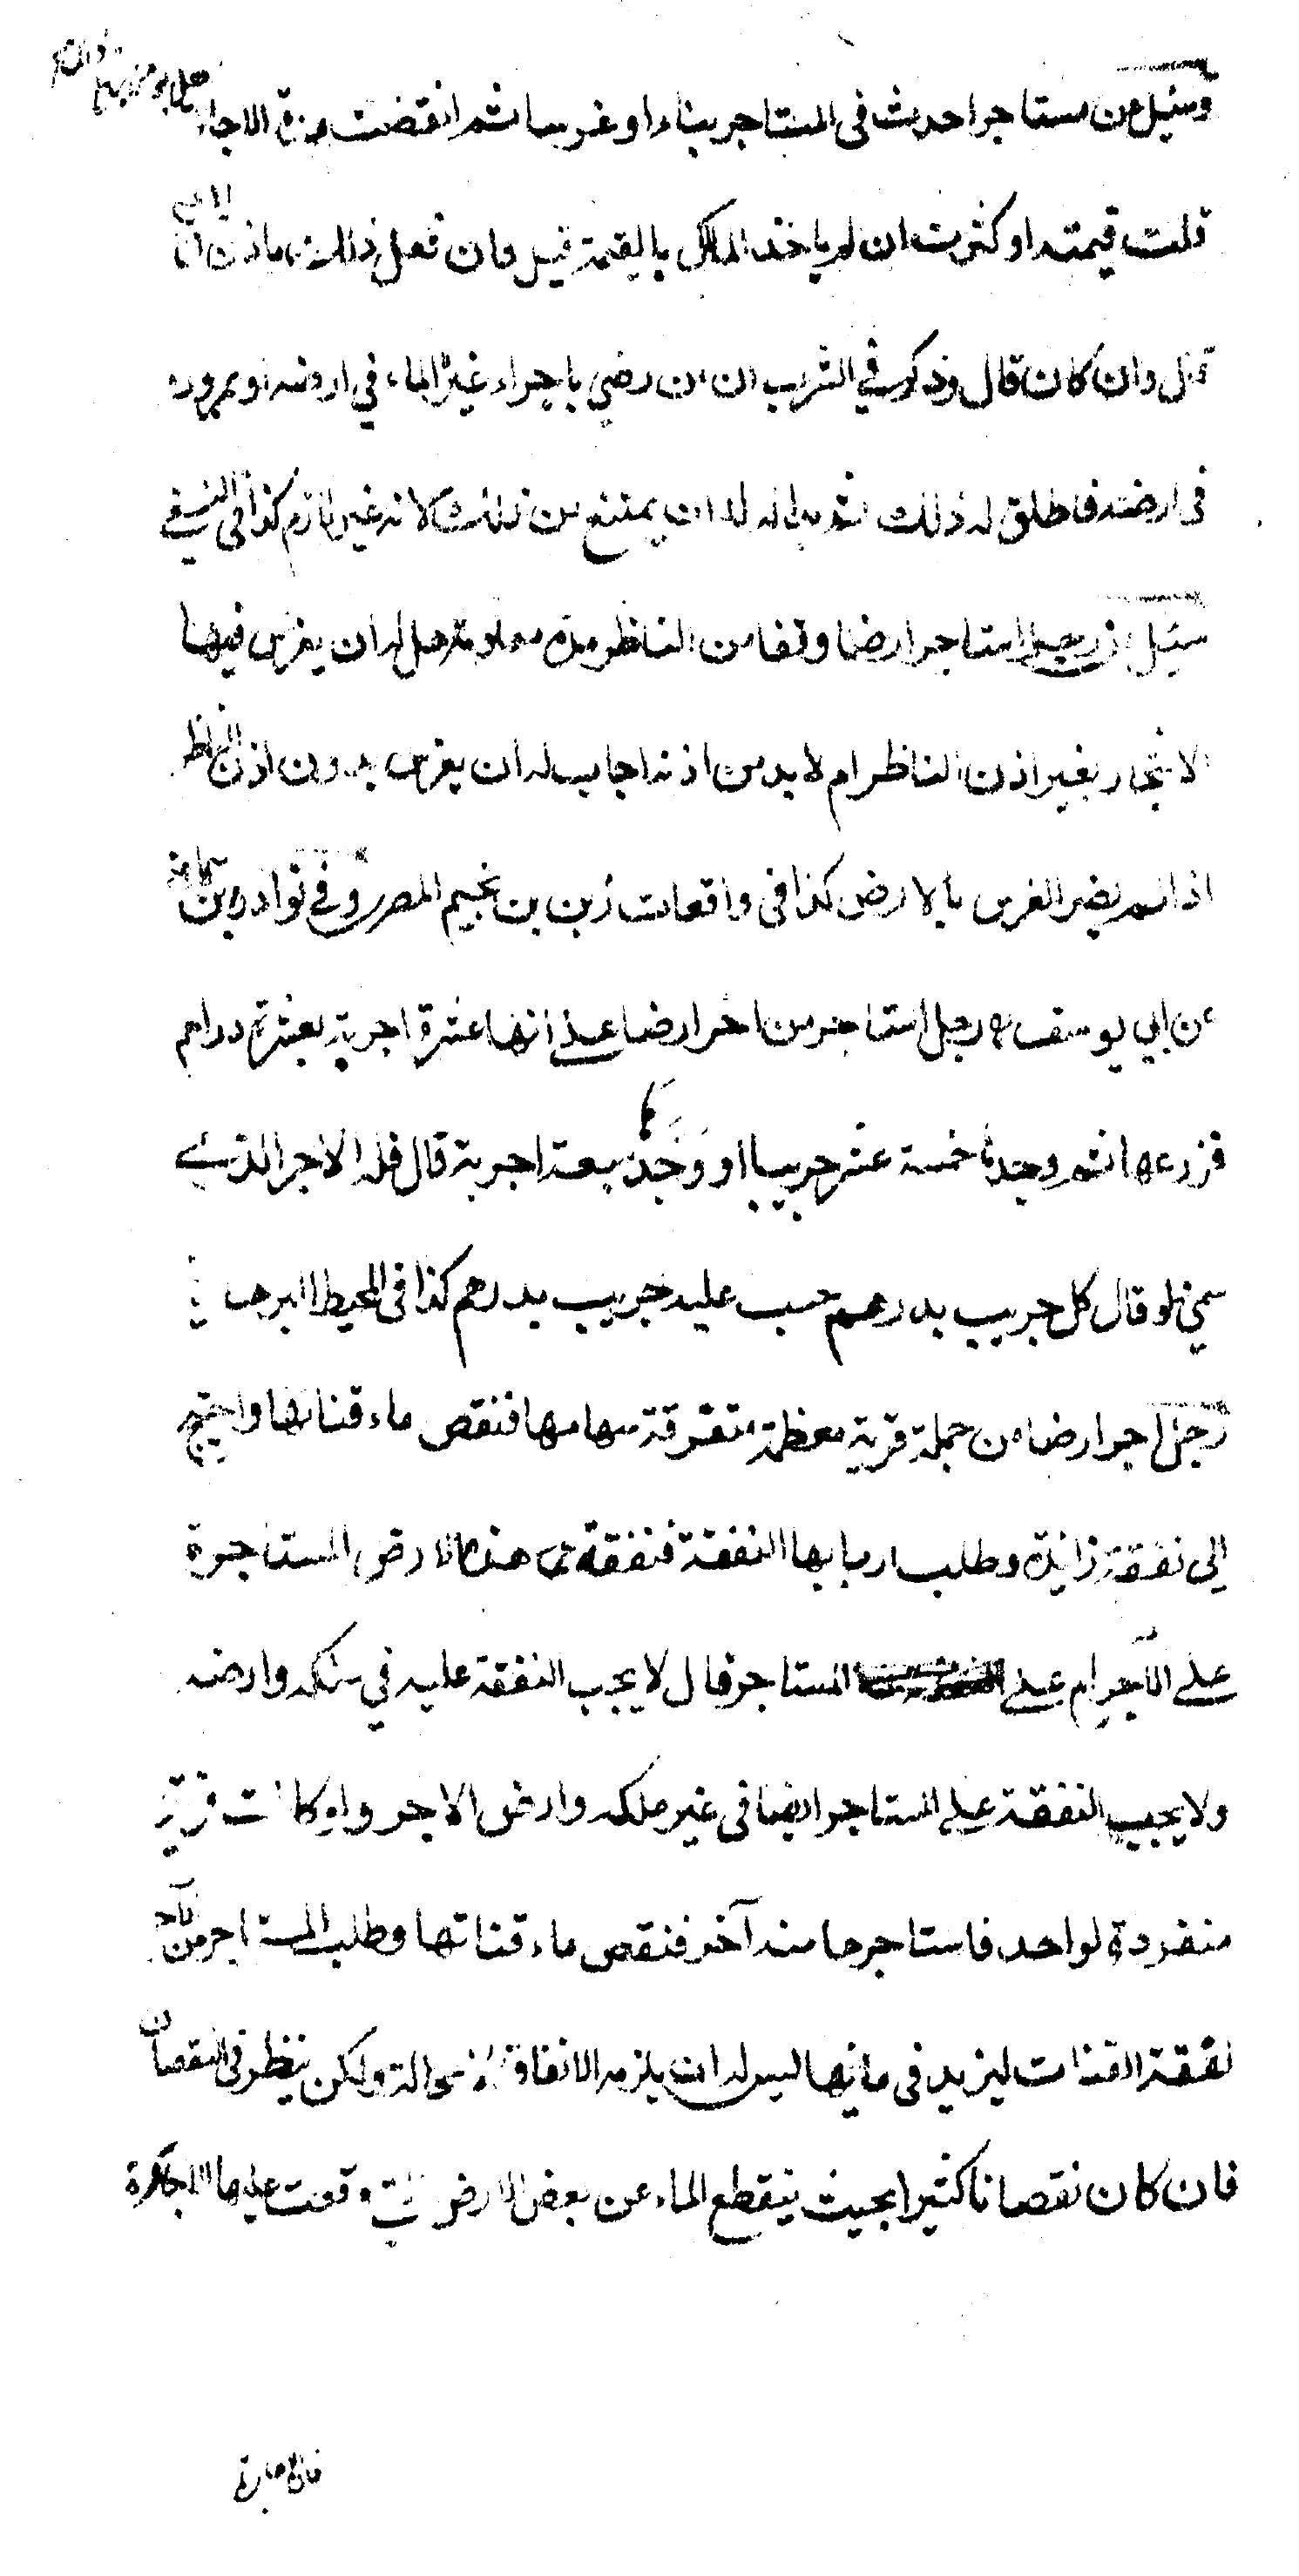 وسئل عن مستاجر احدث في المستاجر بناء او غرسا ثم انقضت مدة الاجا
قلت قيمته او كثرت ان لم ياخذ المالك بالقيمة قيل فان فعل ذلك باذن
قال وان كان قال وذكر في الشرب ان من رضي باجراء غيره الماء في ارضه او بمروره
في ارضه فاطلق له ذلك ثم بدا له له ان يمتنع من ذلك لانه غير لازم كذا في النسفي
سئل عن رجل استاجر ارضا وقفا من الناظر مدة معلومة هل له ان يغرس فيها
الاشجار بغير اذن الناظر ام لا بد من اذنه اجاب له ان يغرس بدون اذن الناظر
اذا لم يضر الغرس بالارض كذا في واقعات زين بن نجيم المصري وفي نوادر ابن سماعة
عن ابي يوسف رجل استاجر من اخر ارضا على انها عشرة اجربة بعشرة دراهم
فزرعها ثم وجدها خمسة عشر جريبا او وجدها سبعة اجربة قال فله الاجر الذي
سمى ولو قال كل جريب بدرهم حسب عليه جريب بدرهم كذا في المحيط البرهاني
رجل اجر ارضا من جملة قرية معظمة متفرقة سهامها فنقص ماء قناتها واحتيج
الى نفقة زايدة وطلب اربابها النفقة فنفقة هذه الارض المستاجرة
على الآجر ام على المستاجر فال لا يجب النفقة عليه في ملكه وارضه
ولا يجب النفقة على المستاجر ايضا في غير ملكه وارض الاجر ولو كانت قرية
منفردة لواحد فاستاجرها منه آخر فنقص ماء قناتها وطلب المستاجر من الآجر
نفقة القناة ليزيد في مائها ليس له ان يلزمه الانفاق لا محالة ولكن ينظر في النقصان
فان كان نقصانا كثيرا بحيث ينقطع الماء عن بعض الارض التي وقعت عليها الاجارة
فالاجارة